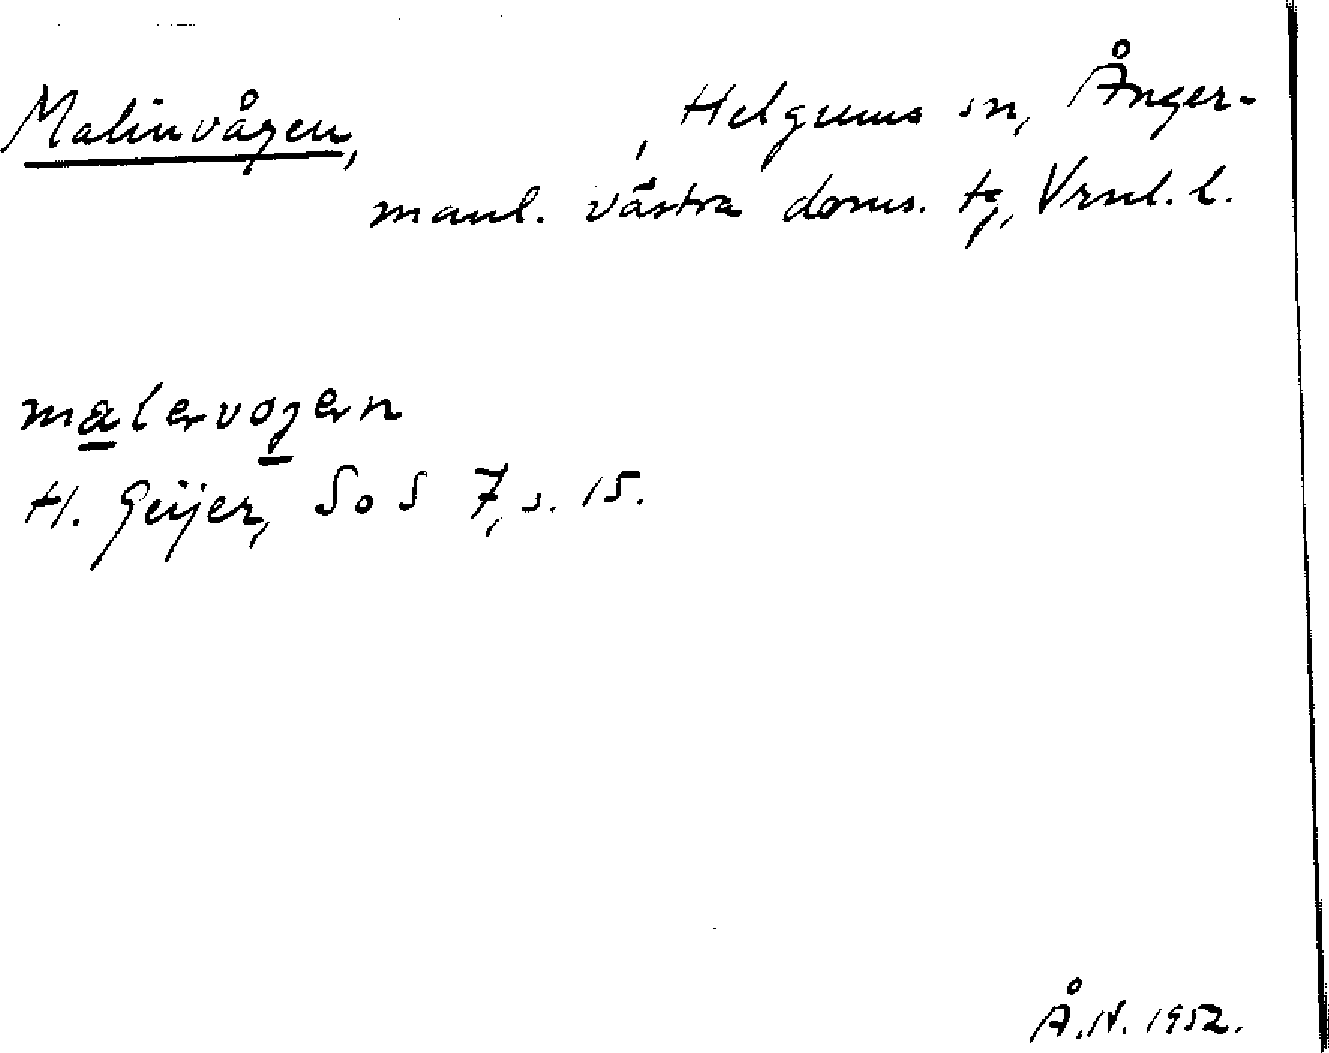 Malinvågen, , Helgums sn, Ånger-
manl. västra doms. tg, Vrnl. l.
malervogern
H. Geijer, SoS 7, s. 15.
Å.N. 1952.